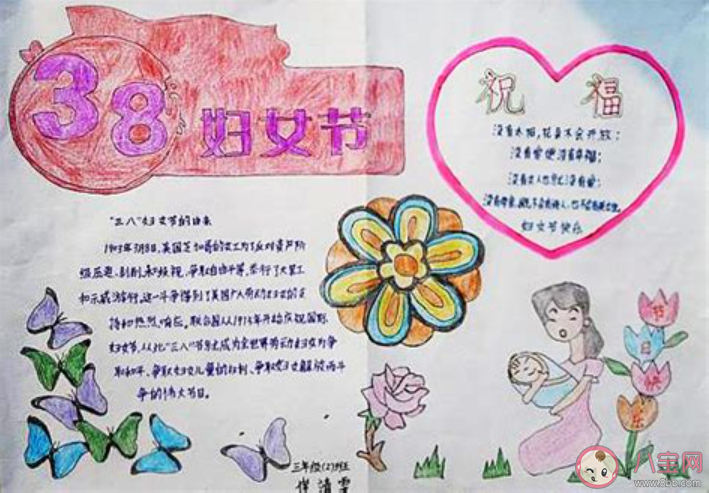 38 妇女节
祝 福
没有太阳,花朵不会开放;
没有爱便没有幸福;
没有女人也就没有爱;
没有母亲,既不会有诗人,也不会有英雄。
妇女节快乐
"三八"妇女节的由来
年3月8日,美国芝加哥的女工为了反对资产阶
级压迫、剥削、和歧视,争取自由平等,举行了大罢工
和示威游行,这一斗争得到了美国广大劳动妇女的支
持和热烈响应。联合国从1975年开始庆祝国际
妇女节,从此"三八"节成为全世界劳动妇女为争
取和平、争取妇女儿童的权利、争取妇女解放而斗
争的伟大节日。
节
日
快
乐
三年级(2)班
清
八宝网